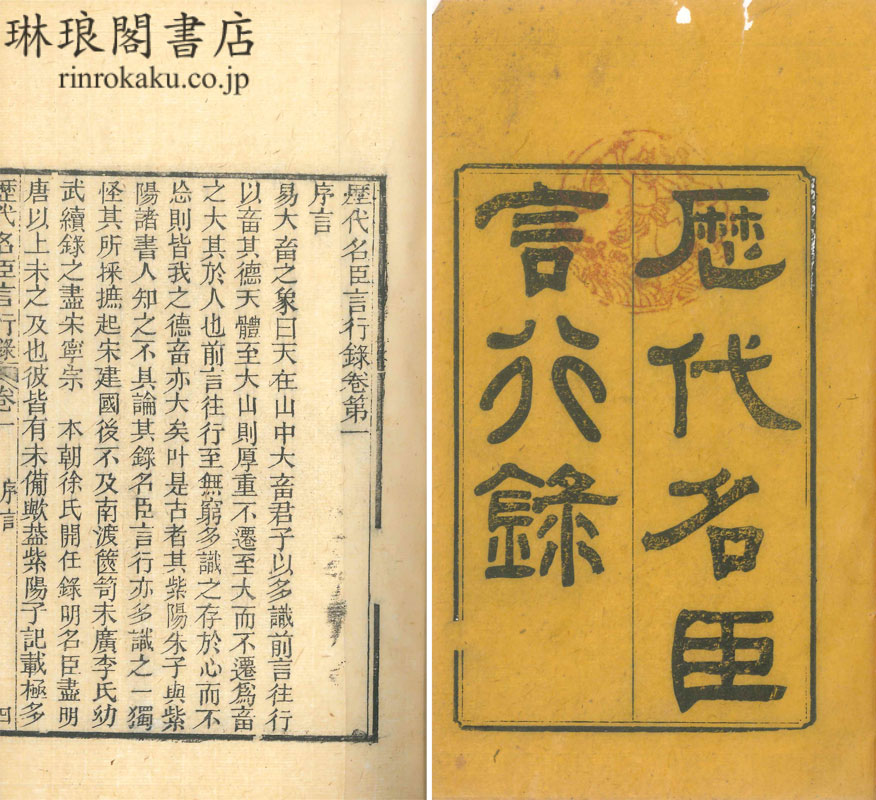 琳琅閣書店
rinrokaku.co.jp
歷代名臣
言行錄
歷代名臣言行錄卷第一
序言
易大畜之象曰天在山中大畜君子以多識前言往行
以畜其德天體至大山則厚重不遷至大而不遷爲畜
之大其於人也前言往行至無窮多識之存於心而不
忘則皆我之德畜亦大矣叶是古者其紫陽朱子與紫
陽諸書人知之不具論其錄名臣言行亦多識之一獨
怪其所採摭起宋建國後不及南渡篋笥未廣李氏幼
武續錄之盡宋寧宗 本朝徐氏開任錄明名臣盡明
唐以上未之及也彼皆有未備歟葢紫陽子記載極多
歷代名臣言行錄 卷一 序言 四